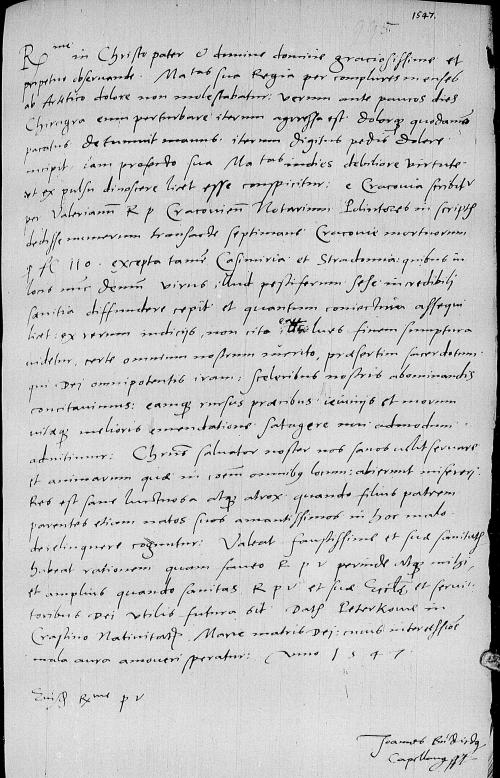 1547.
995
R^me in Christo pater et domine domine graciosissime et
perpetue observande. Mattas sua Regia per complures menses
ab Artetico dolore non molestabatur: verum ante paucos dies
Chiragra eum perturbare iterum agressa est: dolorq quodamo
pacatus detumuit manus. iterum digitus pedis dolere
incipit. iam profecto sua Mattas indies debiliore virtute
ut ex pulsu dinoscere licet esse conspicitur: e Cracovia scribit
per Valerianu R p Cracovien Notarium Pollintores in scriptis
dedisse numerum transacte septimane Cracovie mortuorum
110. excepta tamen Casimiria et Stradomia: quibus in
locis nuc demum virus illud pestiferum sese incredibili
sanitia diffundere cepit et quantum coniectura assequi
licet: ex rerum indicijs, non cito ea lues finem sumptura
videtur, certe omnium nostrum merito, presertim sacerdotum
qui Dei omnipotentis iram: sceleribus nostris abominandis
concitavimus: eamq rursus precibus ieiunijs et morum
viteq melioris emendatione satagere non admodum
adnitimur: Chrus salvator noster nos sanos velit servare
et animarum que in omnibus locis: abierunt misereri.
Res est sane luctuosa atq atrox. quando filius patrem
parentes etiam natos suos amantissimos in hoc malo
derelinquere coguntur: Valeat faustissime et sue sanitatis
habeat rationem quam faveo R p v perinde atq mihi,
et amplius quando sanitas R p v et sue Eccle, et servi-
toribus Dei utilis futura sit. Dats Peterkowie in
Crastino Nativitatis Marie matris Dei: cuius intercessioe
mala aura amoveri speratur: Anno 1547
Eiusd R^me p v
Joannes
Capellanus